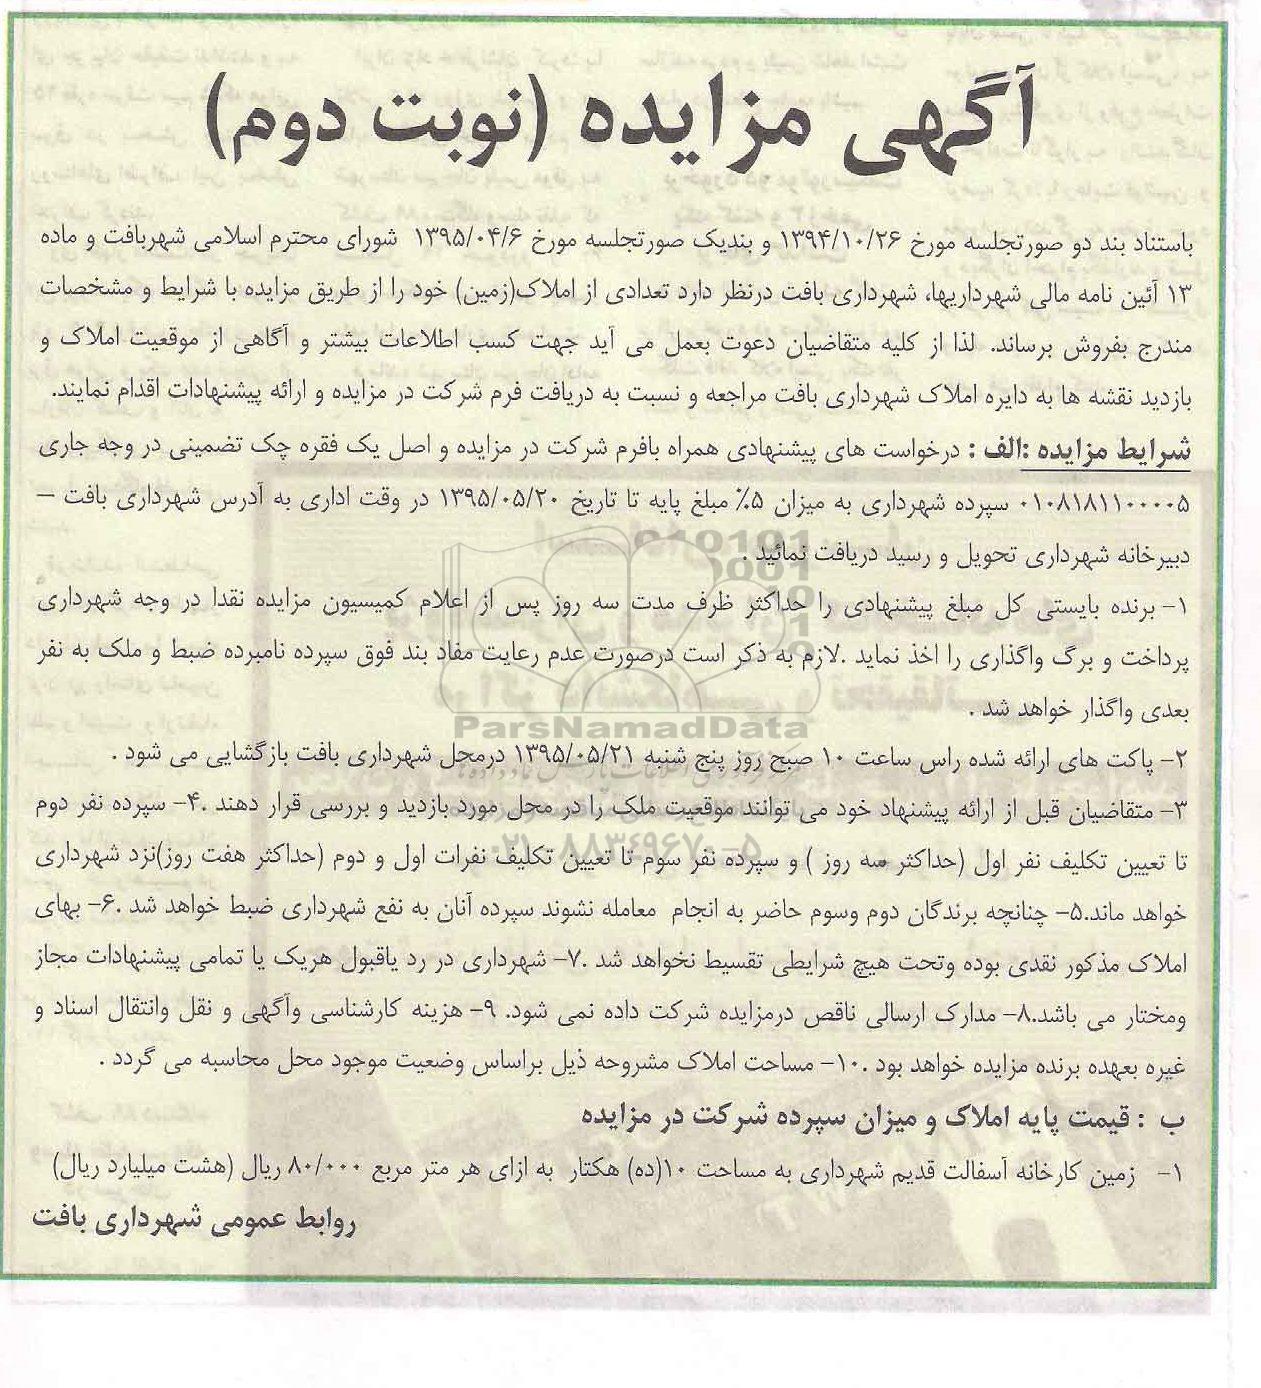 آگهی مزایده (نوبت دوم)
باستناد بند دو صورتجلسه مورخ ۱۳۹۴/۱۰/۲۶ و بندیک صورتجلسه مورخ ۱۳۹۵/۰۴/۶ شورای محترم اسلامی شهربافت و ماده
۱۳ آئین نامه مالی شهرداریها، شهرداری بافت درنظر دارد تعدادی از املاک(زمین) خود را از طریق مزایده با شرایط و مشخصات
مندرج بفروش برساند. لذا از کلیه متقاضیان دعوت بعمل می آید جهت کسب اطلاعات بیشتر و آگاهی از موقعیت املاک و
بازدید نقشه ها به دایره املاک شهرداری بافت مراجعه و نسبت به دریافت فرم شرکت در مزایده و ارائه پیشنهادات اقدام نمایند.
شرایط مزایده :الف : درخواست های پیشنهادی همراه بافرم شرکت در مزایده و اصل یک فقره چک تضمینی در وجه جاری
۰۱۰۸۱۸۱۱۰۰۰۰۵ سپرده شهرداری به میزان ۵٪ مبلغ پایه تا تاریخ ۱۳۹۵/۰۵/۲۰ در وقت اداری به آدرس شهرداری بافت –
دبیرخانه شهرداری تحویل و رسید دریافت نمائید .
۱- برنده بایستی کل مبلغ پیشنهادی را حداکثر ظرف مدت سه روز پس از اعلام کمیسیون مزایده نقدا در وجه شهرداری
پرداخت و برگ واگذاری را اخذ نماید .لازم به ذکر است درصورت عدم رعایت مفاد بند فوق سپرده نامبرده ضبط و ملک به نفر
بعدی واگذار خواهد شد .
ParsNamadData
۲- پاکت های ارائه شده راس ساعت ۱۰ صبح روز پنج شنبه ۱۳۹۵/۰۵/۲۱ درمحل شهرداری بافت بازگشایی می شود .
۳- متقاضیان قبل از ارائه پیشنهاد خود می توانند موقعیت ملک را در محل مورد بازدید و بررسی قرار دهند .۴- سپرده نفر دوم
۰۲۱-۸۸۳۴۹۶۷۰-۵
تا تعیین تکلیف نفر اول (حداکثر سه روز ) و سپرده نفر سوم تا تعیین تکلیف نفرات اول و دوم (حداکثر هفت روز)نزد شهرداری
خواهد ماند.۵- چنانچه برندگان دوم وسوم حاضر به انجام معامله نشوند سپرده آنان به نفع شهرداری ضبط خواهد شد .۶- بهای
املاک مذکور نقدی بوده وتحت هیچ شرایطی تقسیط نخواهد شد .۷- شهرداری در رد یاقبول هریک یا تمامی پیشنهادات مجاز
ومختار می باشد.۸- مدارک ارسالی ناقص درمزایده شرکت داده نمی شود. ۹- هزینه کارشناسی وآگهی و نقل وانتقال اسناد و
غیره بعهده برنده مزایده خواهد بود .۱۰- مساحت املاک مشروحه ذیل براساس وضعیت موجود محل محاسبه می گردد .
ب : قیمت پایه املاک و میزان سپرده شرکت در مزایده
۱- زمین کارخانه آسفالت قدیم شهرداری به مساحت ۱۰(ده) هکتار به ازای هر متر مربع ۸۰/۰۰۰ ریال (هشت میلیارد ریال)
روابط عمومی شهرداری بافت